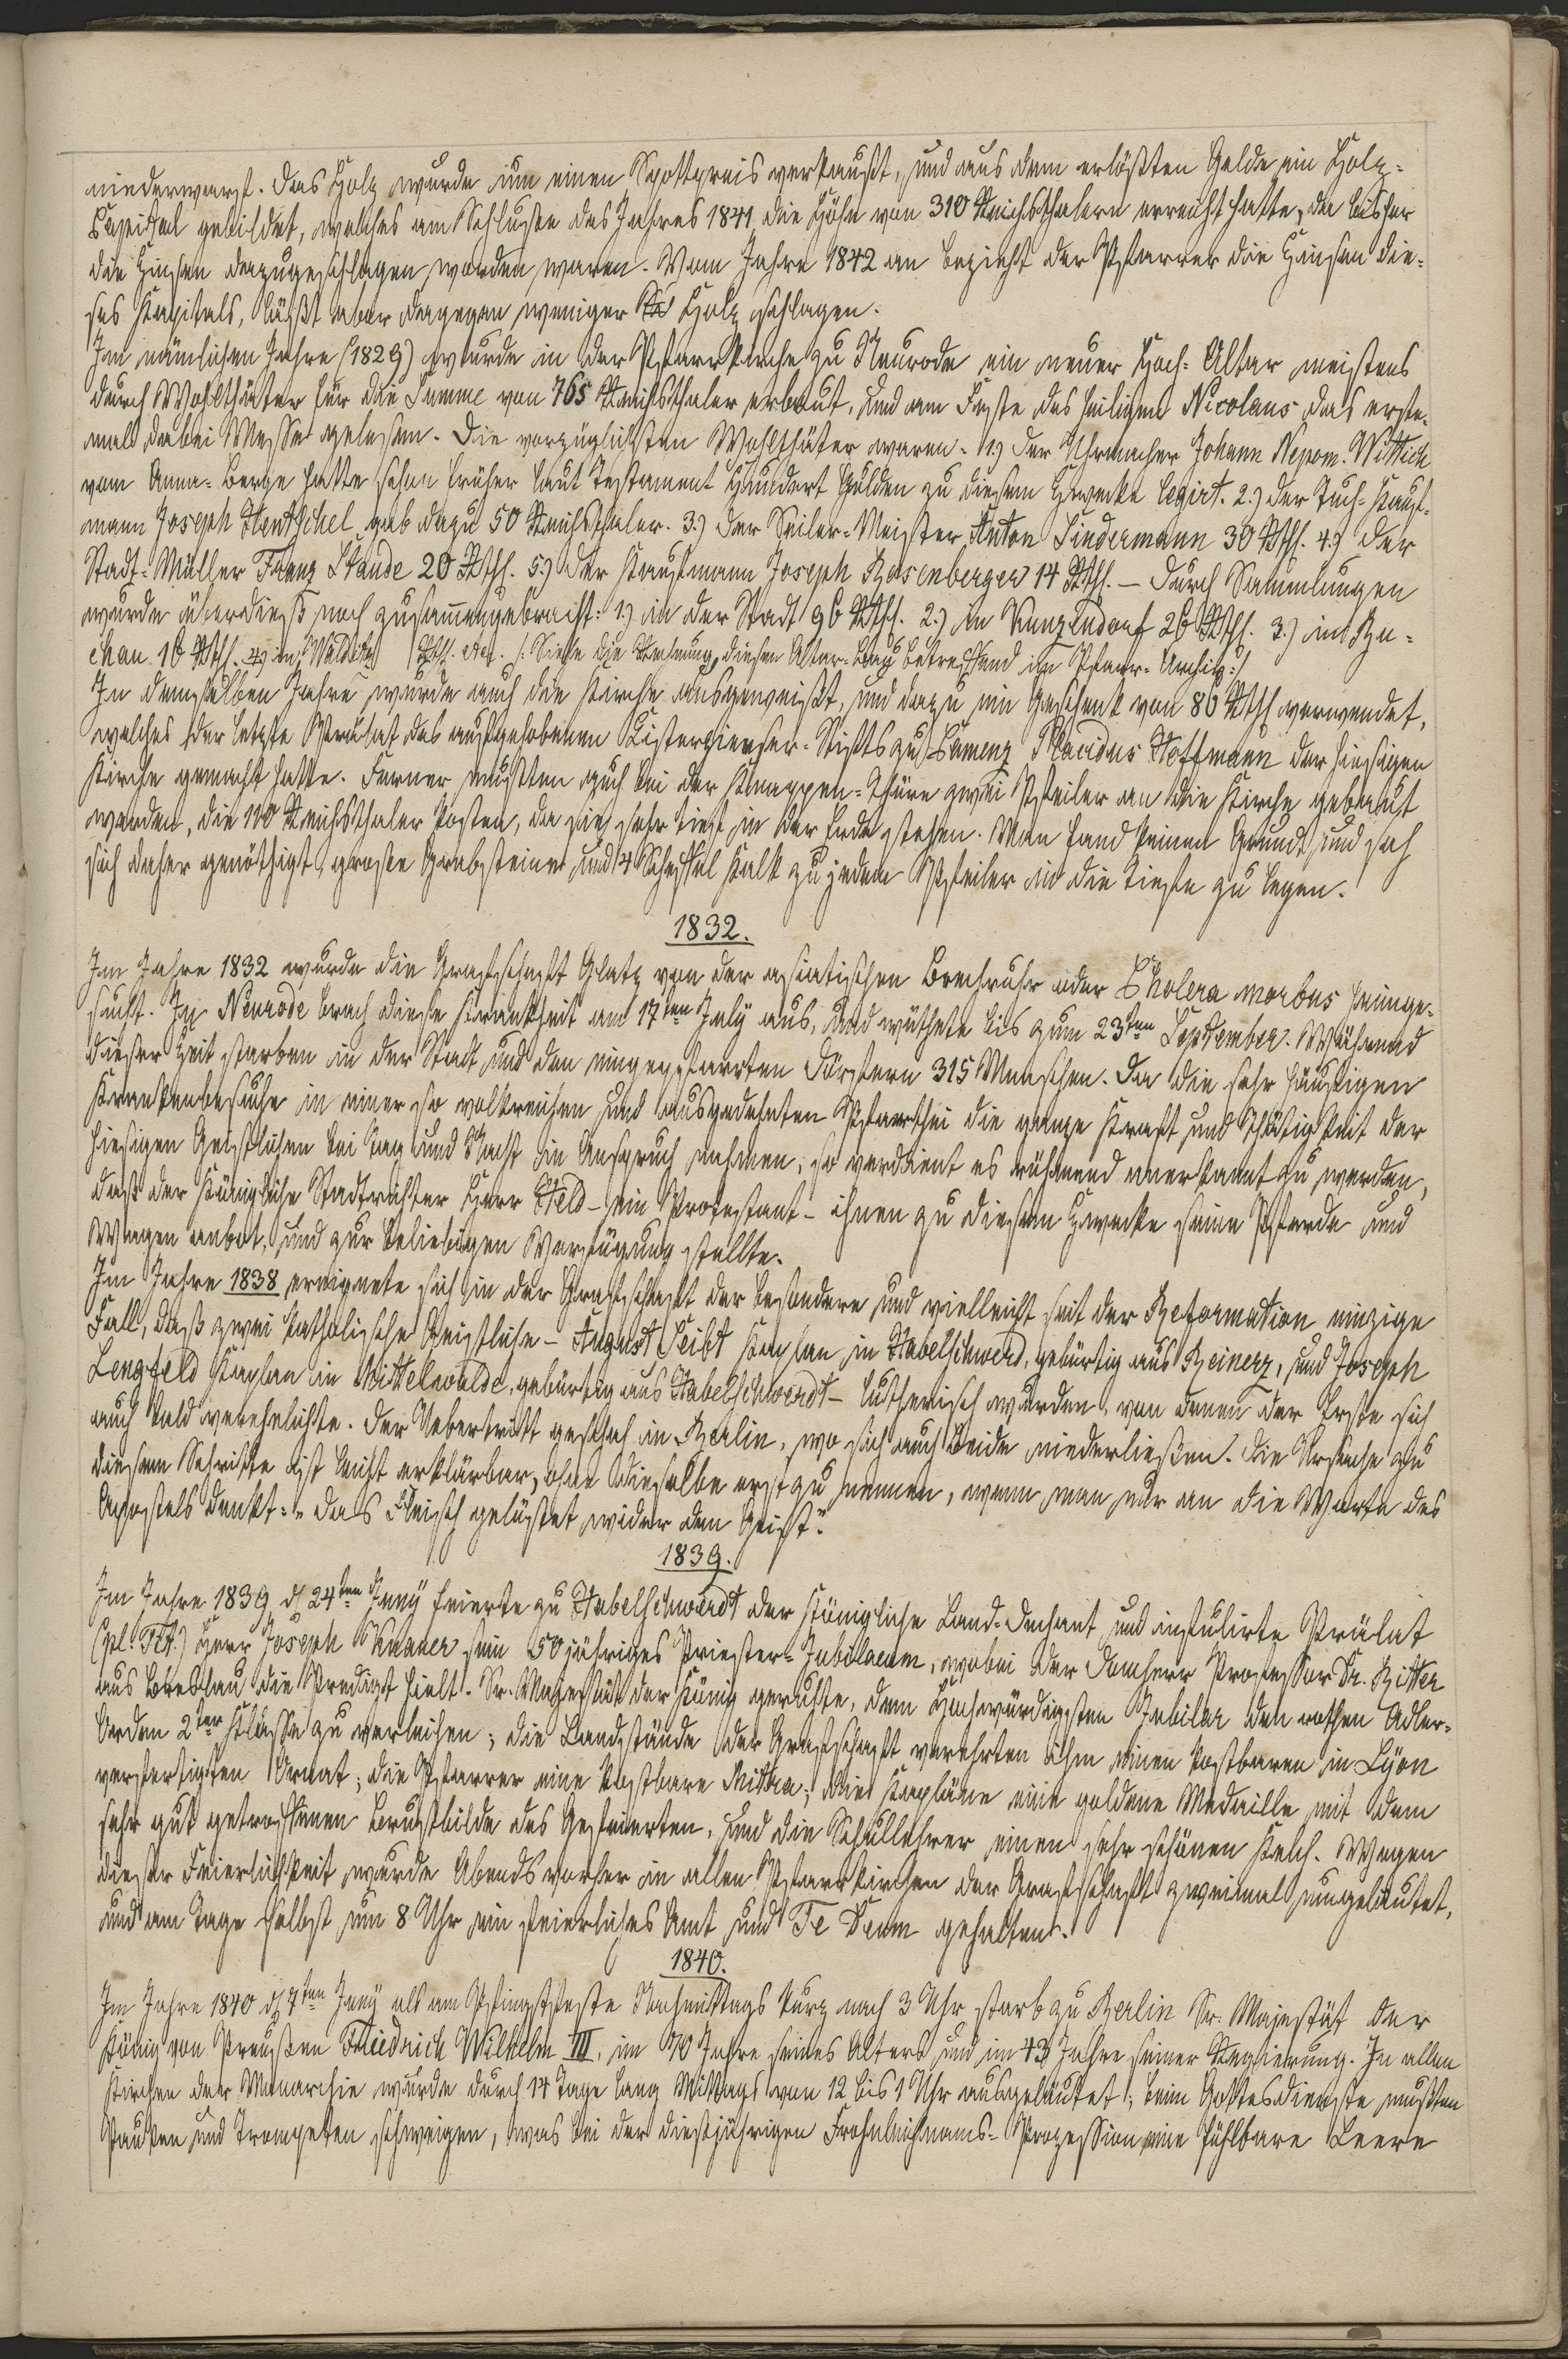 niederwarf. Das Holz wurde um einen Spottpreis verkauft, und aus dem erlößten Gelde ein Holz-
Capital gebildet, welches am Schluße des Jahres 1841 die Höhe von 310 Reichsthalern erreicht hatte, da bisher
die Zinsen dazugeschlagen worden waren. Vom Jahre 1842 an bezieht der Pfarrer die Zinsen die-
ses Kapitals, läßt aber dagegen weniger Holz schlagen.
Im nämlichen Jahre (1829) wurde in der Pfarrkirche zu Neurode ein neuer Hoch-Altar meistens
durch Wohlthäter für die Summe von 765 Reichsthaler erbaut, und am Feste des heiligen Nicolaus das erste-
mal dabei Messe gelesen. Die vorzüglichsten Wohlthäter waren: 1.) Der Uhrmacher Johann Nepom. Wittich
vom Anna-Berge hatte schon früher laut Testament Hundert Gulden zu diesem Zwecke legirt. 2.) Der Tuch-Kauf-
mann Joseph Hentschel gab dazu 50 Reichsthaler. 3.) Der Seiler-Meister Anton Lindermann 30 Rthl. 4.) Der
Stadt-Müller Franz Staude 20 Rthl. 5.) Der Kaufmann Joseph Rosenberger 14 Rthl. — Durch Sammlungen
wurde überdieß noch zusammengebracht: 1.) in der Stadt 96 Rthl. 2.) in Kunzendorf 26 Rthl. 3.) in Bu-
chau 16 Rthl. 4.) in Walditz Rthl. etc. /: Siehe die Rechnung, diesen Altar-Bau betreffend im Pfarr-Archiv :/
In demselben Jahre wurde auch die Kirche ausgeweißt, und dazu ein Geschenk von 80 Rthl verwendet,
welches der letzte Prälat des aufgehobenen Cisterzienser-Stifts zu Camenz Placidus Hoffmann der hiesigen
Kirche gemacht hatte. Ferner mußten auch bei der Knappen-Thüre zwei Pfeiler an die Kirche gebaut
werden, die 110 Reichsthaler kosten, da sie sehr tief in der Erde stehen. Man fand keinen Grund, und sah
sich daher genöthigt, große Grabsteine und 4 Scheffel Kalk zu jedem Pfeiler in die Tiefe zu legen.
1832.
Im Jahre 1832 wurde die Grafschaft Glatz von der asiatischen Brechruhr oder Cholera morbus heimge-
sucht. In Neurode brach diese Krankheit am 17ten July aus, und wüthete bis zum 23ten September. Während
dieser Zeit starben in der Stadt und den eingepfarrten Dörfern 315 Menschen. Da die sehr häufigen
Krankenbesuche in einer so volkreichen und ausgedehnten Pfarrthei die ganze Kraft und Thätigkeit der
hiesigen Geistlichen bei Tag und Nacht in Anspruch nahmen, so verdient es rühmend anerkannt zu werden,
daß der Königliche Stadtrichter Herr Held - ein Protestant - ihnen zu diesem Zwecke seine Pferde und
Wagen anbot, und zur beliebigen Verfügung stellte.
Im Jahre 1838 ereignete sich in der Grafschaft der besondere und vielleicht seit der Reformation einzige
Fall, daß zwei katholische Geistliche - August Seibt Kaplan in Habelschwerd, gebürtig aus Reinerz, und Joseph
Lengfeld Kaplan in Mittelwalde, gebürtig aus Habelschwerdt - lutherisch wurden, von denen der Erste sich
auch bald verehelichte. Der Uebertritt geschah in Berlin, wo sich auch Beide niederließen. Die Ursache zu
diesem Schritte ist leicht erklärbar, ohne dieselbe erst zu nennen, wenn man nur an die Worte des
Apostels denkt: „das Fleisch gelüstet wider den Geist."
1839.
Im Jahre 1839 d 24ten Juny feierte zu Habelschwerdt der Königliche Land-Dechant und infulirte Prälat
(pl. Tit.) Herr Joseph Knauer sein 50 jähriges Priester-Jubilaeum, wobei der Domherr Professor Dr. Ritter
aus Breslau die Predigt hielt. Sr. Majestät der König geruhte, dem Hochwürdigsten Jubilar den rothen Adler-
Orden 2ter Klasse zu verleihen; die Landstände der Grafschaft verehrten ihm einen kostbaren in Lyon
verfertigten Ornat; die Pfarrer eine kostbare Mitra; die Kapläne eine goldene Medaille mit dem
sehr gut getroffenen Brustbilde des Gefeierten, und die Schullehrer einen sehr schönen Kelch. Wegen
dieser Feierlichkeit wurde Abends vorher in allen Pfarrkirchen der Grafschaft zweimal eingeläutet,
und am Tage selbst um 8 Uhr ein feierliches Amt und Te Deum gehalten.
1840.
Im Jahre 1840 d 7ten Juny als am Pfingstfeste Nachmittags kurz nach 3 Uhr starb zu Berlin Sr. Majestät der
König von Preußen Friedrich Wilhelm III, im 70 Jahre seines Alters und im 43 Jahre seiner Regierung. In allen
Kirchen der Monarchie wurde durch 14 Tage lang Mittags von 12 bis 1 Uhr ausgeläutet; beim Gottesdienste mußten
Pauken und Trompeten schweigen, was bei der dießjährigen Frohnleichnams-Prozession eine fühlbare Leere